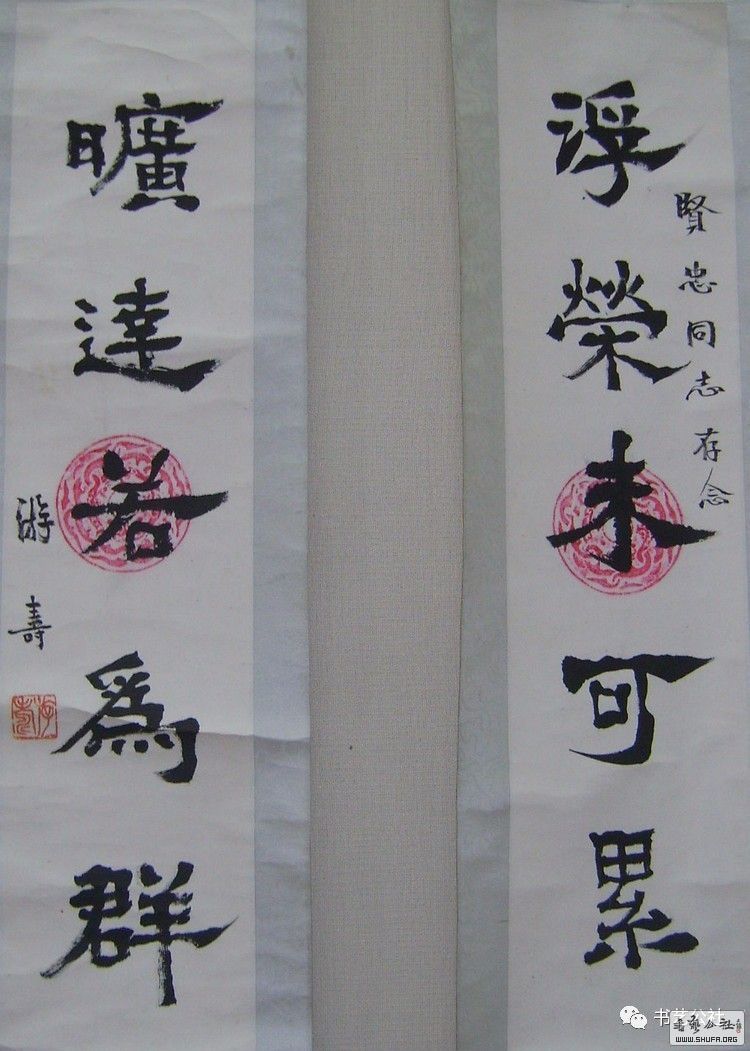 浮榮未可累
賢忠同志存念
曠達若為群
游壽
游壽
书艺公社
書藝公社
WWW.SHUFA.ORG